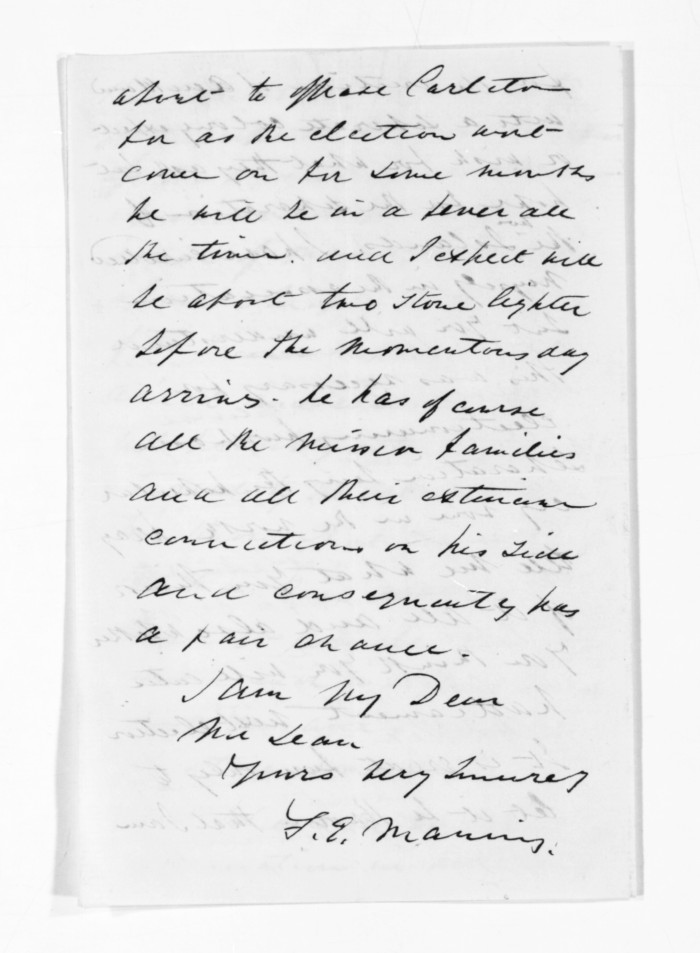 about to oppose Carleton
for as the election wont
come on for some months
he will be in a fever all
the time. and I expect will
be about two stone lighter
before the momentous day
arrives. he has of course
all the mission families
and all their extensive
connections on his side
and consequently has
a fair chance.
I am My Dear
McLean
Yours very sincerely
F. E. Maning.